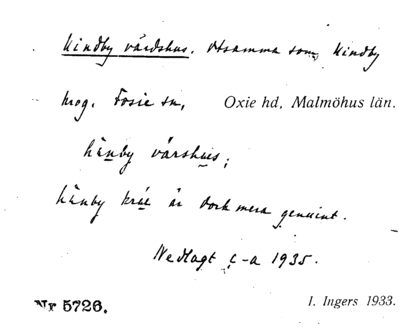 Kindby värdshus. Detsamma som Kindby
krog. Fosie sn, Oxie hd, Malmöhus län.
hänby värshus;
hänby króe är dock mera genuint.
Nedlagt c-a 1935.
Nr 5726. I. Ingers 1933.